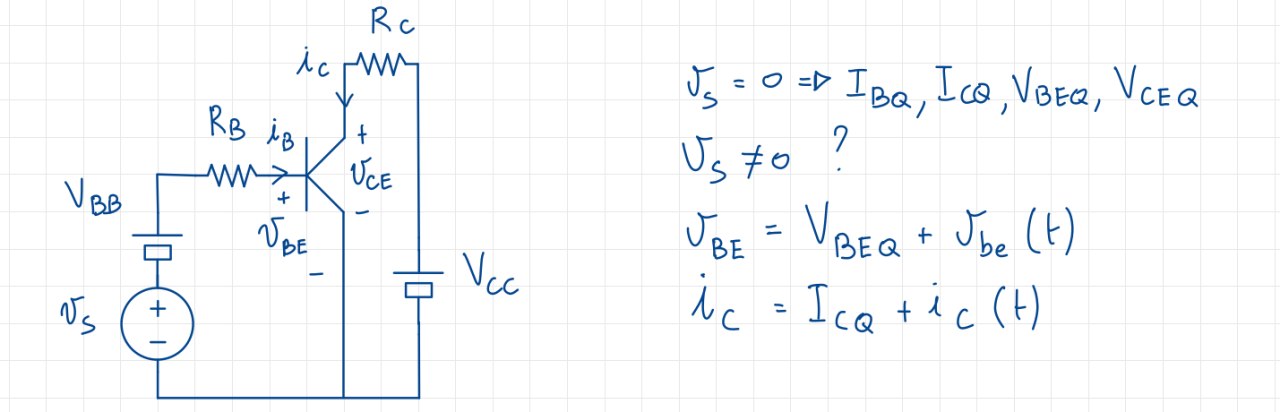 R_C
i_C
R_B i_B
+
v_CE
V_BB
+
v_BE
−
−
V_CC
v_S
+
−
v_S = 0 ⇒ I_BQ, I_CQ, V_BEQ, V_CEQ
v_S ≠ 0 ?
v_BE = V_BEQ + v_be (t)
i_C = I_CQ + i_c (t)